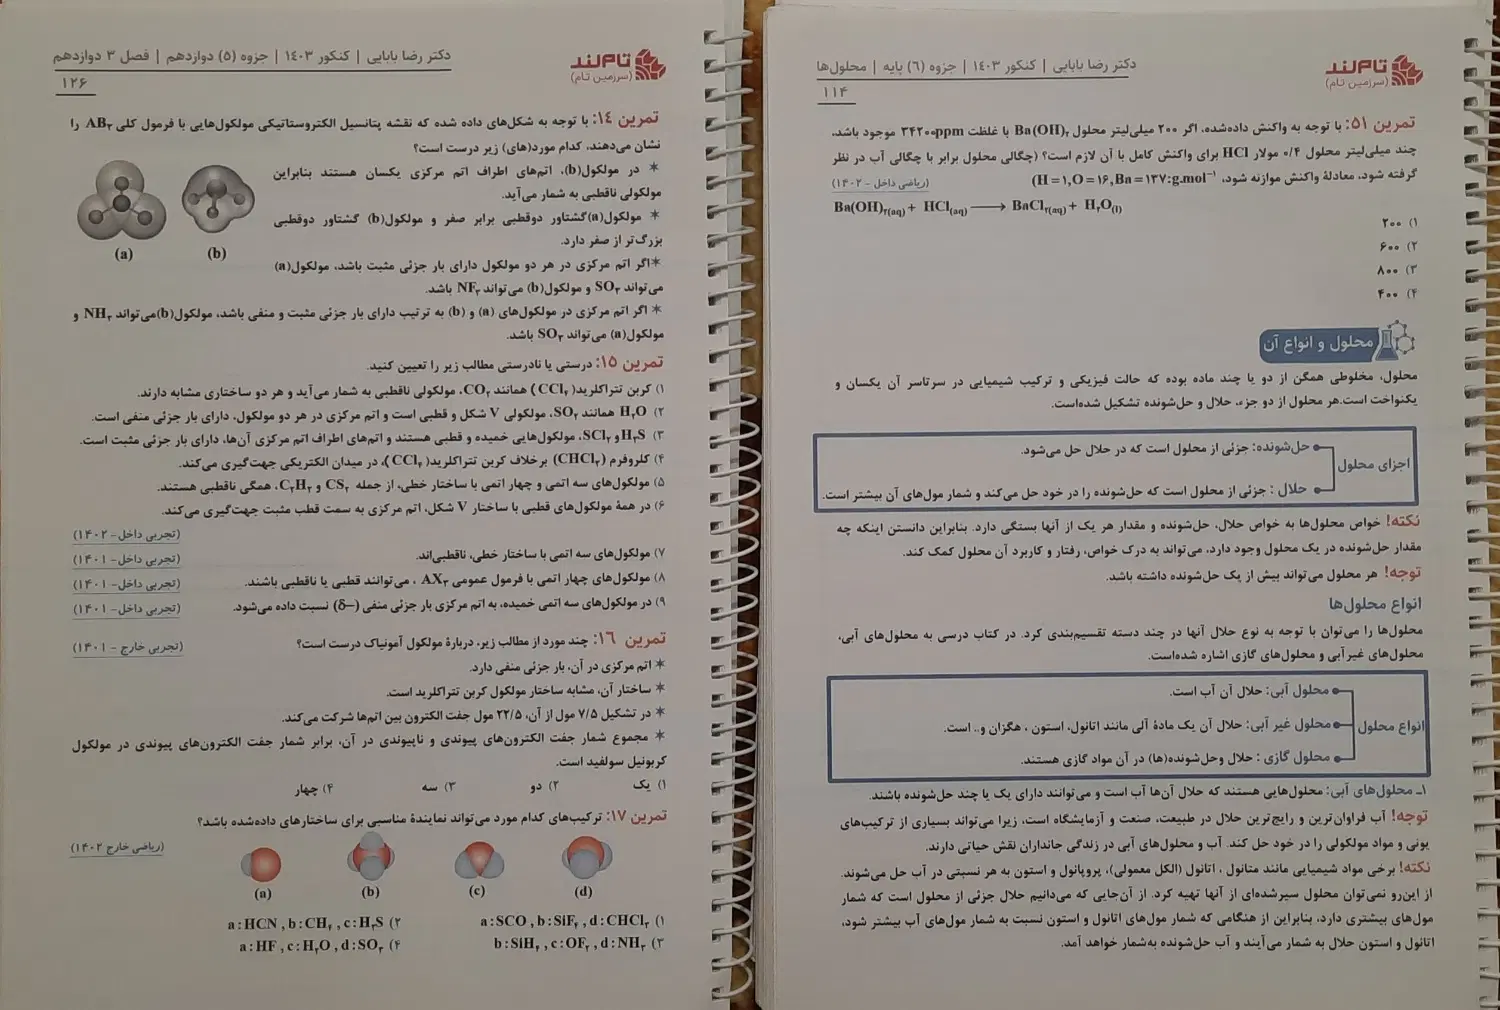 تام‌لند
(سرزمین تام)
دکتر رضا بابایی | کنکور ۱۴۰۳ | جزوه (۶) پایه | محلول‌ها
۱۱۴
تمرین ۵۱: با توجه به واکنش داده‌شده، اگر ۲۰۰ میلی‌لیتر محلول Ba(OH)۲ با غلظت ۳۴۲۰۰ppm موجود باشد،
چند میلی‌لیتر محلول ۰/۴ مولار HCl برای واکنش کامل با آن لازم است؟ (چگالی محلول برابر با چگالی آب در نظر
گرفته شود، معادلهٔ واکنش موازنه شود، H=۱,O=۱۶,Ba=۱۳۷:g.mol⁻¹) (ریاضی داخل - ۱۴۰۲)
Ba(OH)۲(aq) + HCl(aq) ⟶ BaCl۲(aq) + H۲O(l)
۱) ۲۰۰
۲) ۶۰۰
۳) ۸۰۰
۴) ۴۰۰
محلول و انواع آن
محلول، مخلوطی همگن از دو یا چند ماده بوده که حالت فیزیکی و ترکیب شیمیایی در سرتاسر آن یکسان و
یکنواخت است.هر محلول از دو جزء، حلال و حل‌شونده تشکیل شده‌است.
اجزای محلول
حل‌شونده: جزئی از محلول است که در حلال حل می‌شود.
حلال : جزئی از محلول است که حل‌شونده را در خود حل می‌کند و شمار مول‌های آن بیشتر است.
نکته! خواص محلول‌ها به خواص حلال، حل‌شونده و مقدار هر یک از آنها بستگی دارد. بنابراین دانستن اینکه چه
مقدار حل‌شونده در یک محلول وجود دارد، می‌تواند به درک خواص، رفتار و کاربرد آن محلول کمک کند.
توجه! هر محلول می‌تواند بیش از یک حل‌شونده داشته باشد.
انواع محلول‌ها
محلول‌ها را می‌توان با توجه به نوع حلال آنها در چند دسته تقسیم‌بندی کرد. در کتاب درسی به محلول‌های آبی،
محلول‌های غیرآبی و محلول‌های گازی اشاره شده‌است.
انواع محلول
محلول آبی: حلال آن آب است.
محلول غیر آبی: حلال آن یک مادهٔ آلی مانند اتانول، استون ، هگزان و.. است.
محلول گازی : حلال وحل‌شونده(ها) در آن مواد گازی هستند.
۱ـ محلول‌های آبی: محلول‌هایی هستند که حلال آن‌ها آب است و می‌توانند دارای یک یا چند حل‌شونده باشند.
توجه! آب فراوان‌ترین و رایج‌ترین حلال در طبیعت، صنعت و آزمایشگاه است، زیرا می‌تواند بسیاری از ترکیب‌های
یونی و مواد مولکولی را در خود حل کند. آب و محلول‌های آبی در زندگی جانداران نقش حیاتی دارند.
نکته! برخی مواد شیمیایی مانند متانول ، اتانول (الکل معمولی)، پروپانول و استون به هر نسبتی در آب حل می‌شوند.
از این‌رو نمی‌توان محلول سیرشده‌ای از آنها تهیه کرد. از آن‌جایی که می‌دانیم حلال جزئی از محلول است که شمار
مول‌های بیشتری دارد، بنابراین از هنگامی که شمار مول‌های اتانول و استون نسبت به شمار مول‌های آب بیشتر شود،
اتانول و استون حلال به شمار می‌آیند و آب حل‌شونده به‌شمار خواهد آمد.
تام‌لند
(سرزمین تام)
دکتر رضا بابایی | کنکور ۱۴۰۳ | جزوه (۵) دوازدهم | فصل ۳ دوازدهم
۱۲۶
تمرین ۱۴: با توجه به شکل‌های داده شده که نقشه پتانسیل الکتروستاتیکی مولکول‌هایی با فرمول کلی AB۳ را
نشان می‌دهند، کدام مورد(های) زیر درست است؟
* در مولکول(b)، اتم‌های اطراف اتم مرکزی یکسان هستند بنابراین
مولکولی ناقطبی به شمار می‌آید.
* مولکول(a)گشتاور دوقطبی برابر صفر و مولکول(b) گشتاور دوقطبی
بزرگ‌تر از صفر دارد.
*اگر اتم مرکزی در هر دو مولکول دارای بار جزئی مثبت باشد، مولکول(a)
می‌تواند SO۳ و مولکول(b) می‌تواند NF۳ باشد.
* اگر اتم مرکزی در مولکول‌های (a) و (b) به ترتیب دارای بار جزئی مثبت و منفی باشد، مولکول(b)می‌تواند NH۳ و
مولکول(a) می‌تواند SO۳ باشد.
(a) (b)
تمرین ۱۵: درستی یا نادرستی مطالب زیر را تعیین کنید.
۱) کربن تتراکلرید( CCl۴ ) همانند CO۲، مولکولی ناقطبی به شمار می‌آید و هر دو ساختاری مشابه دارند.
۲) H۲O همانند SO۲، مولکولی V شکل و قطبی است و اتم مرکزی در هر دو مولکول، دارای بار جزئی منفی است.
۳) H۲S و SCl۲، مولکول‌هایی خمیده و قطبی هستند و اتم‌های اطراف اتم مرکزی آن‌ها، دارای بار جزئی مثبت است.
۴) کلروفرم (CHCl۳) برخلاف کربن تتراکلرید( CCl۴)، در میدان الکتریکی جهت‌گیری می‌کند.
۵) مولکول‌های سه اتمی و چهار اتمی با ساختار خطی، از جمله CS۲ و C۲H۲، همگی ناقطبی هستند.
۶) در همهٔ مولکول‌های قطبی با ساختار V شکل، اتم مرکزی به سمت قطب مثبت جهت‌گیری می‌کند.
(تجربی داخل- ۱۴۰۲)
۷) مولکول‌های سه اتمی با ساختار خطی، ناقطبی‌اند. (تجربی داخل- ۱۴۰۱)
۸) مولکول‌های چهار اتمی با فرمول عمومی AX۳ ، می‌توانند قطبی یا ناقطبی باشند. (تجربی داخل- ۱۴۰۱)
۹) در مولکول‌های سه اتمی خمیده، به اتم مرکزی بار جزئی منفی (δ−) نسبت داده می‌شود. (تجربی داخل- ۱۴۰۱)
تمرین ۱۶: چند مورد از مطالب زیر، دربارهٔ مولکول آمونیاک درست است؟ (تجربی خارج - ۱۴۰۱)
* اتم مرکزی در آن، بار جزئی منفی دارد.
* ساختار آن، مشابه ساختار مولکول کربن تتراکلرید است.
* در تشکیل ۷/۵ مول از آن، ۲۲/۵ مول جفت الکترون بین اتم‌ها شرکت می‌کند.
* مجموع شمار جفت الکترون‌های پیوندی و ناپیوندی در آن، برابر شمار جفت الکترون‌های پیوندی در مولکول
کربونیل سولفید است.
۱) یک ۲) دو ۳) سه ۴) چهار
تمرین ۱۷: ترکیب‌های کدام مورد می‌تواند نمایندهٔ مناسبی برای ساختارهای داده‌شده باشد؟
(ریاضی خارج ۱۴۰۲)
(a) (b) (c) (d)
۱) a:SCO , b:SiF۴ , d:CHCl۳ ۲) a:HCN , b:CH۴ , c:H۲S
۳) b:SiH۴ , c:OF۲ , d:NH۳ ۴) a:HF , c:H۲O , d:SO۳